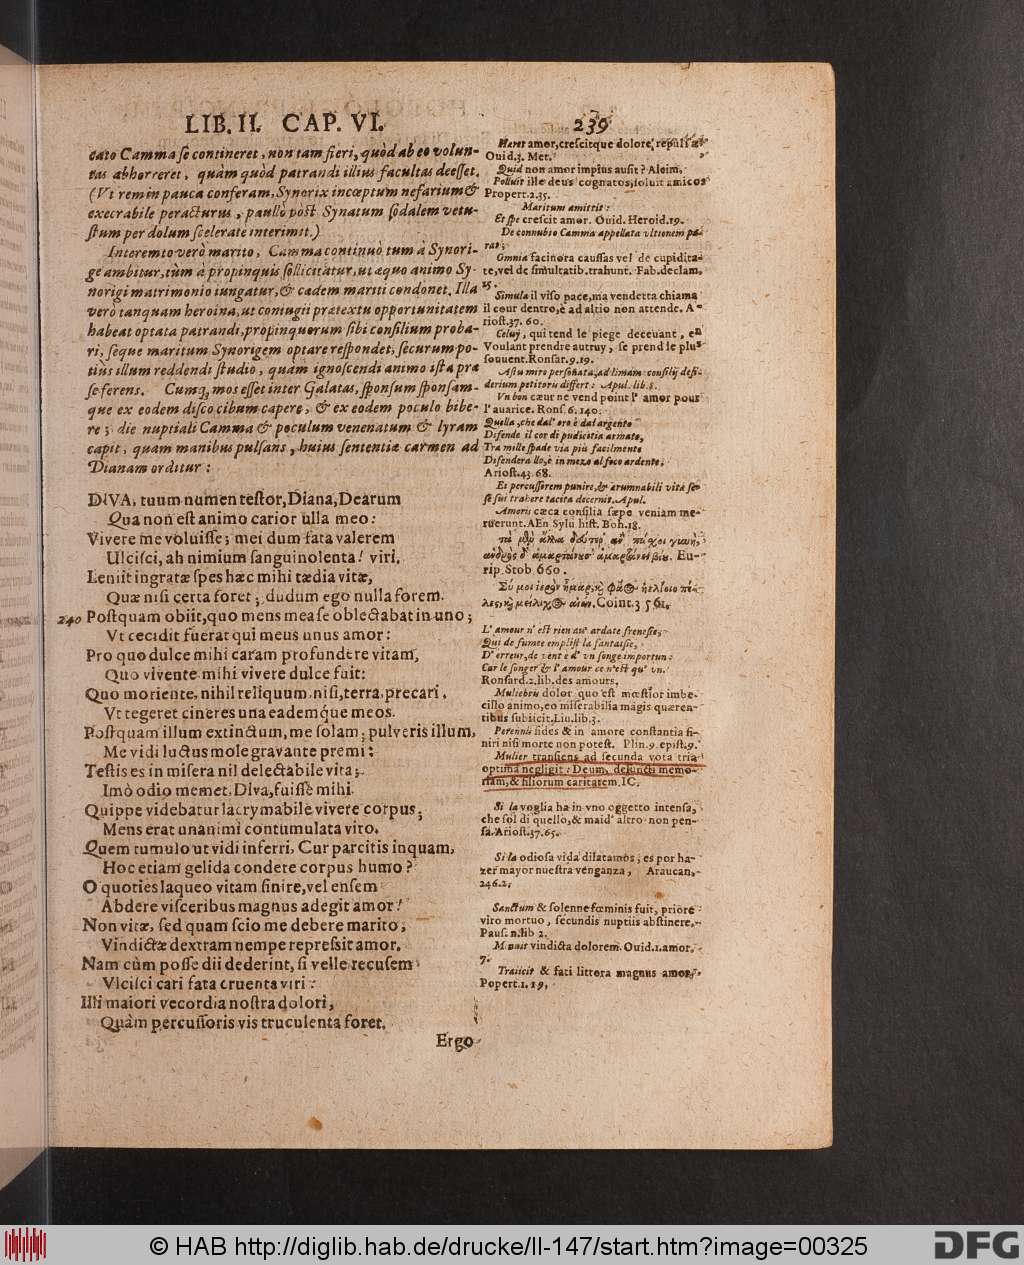 LIB. II. CAP. VI. 239
cato Camma ſe contineret, non tam fieri, quòd ab eo volun-
tas abhorreret, quàm quòd patrandi illius facultas deeſſet.
(Vt rem in pauca conferam, Synorix incœptum nefarium &
execrabile peracturus, paullò pòst Synatum ſodalem vetu-
ſtum per dolum ſcelerate interimit.)
Interemto verò marito, Camma continuò tum à Synori-
ge ambitur, tùm à propinquis ſollicitatur, ut æquo animo Sy-
norigi matrimonio iungatur, & cædem mariti condonet. Illa
verò tanquam heroina, ut coniugii prætextu opportunitatem
habeat optata patrandi, propinquorum ſibi conſilium proba-
ri, ſeque maritum Synorigem optare reſpondet, ſecurum po-
tiùs illum reddendi ſtudio, quàm ignoſcendi animo iſta præ
ſe ferens. Cumq; mos eſſet inter Galatas, ſponſum ſponſam-
que ex eodem diſco cibum capere, & ex eodem poculo bibe-
re; die nuptiali Camma & poculum venenatum & lyram
capit, quam manibus pulſans, huius ſententiæ carmen ad
Dianam orditur:
DIVA, tuum numen teſtor, Diana, Dearum
Qua non eſt animo carior ulla meo:
Vivere me voluiſſe; mei dum fata valerem
Ulciſci, ah nimium ſanguinolenta! viri,
Leniit ingratæ ſpes hæc mihi tædia vitæ,
Quæ niſi certa foret; dudum ego nulla forem.
240 Poſtquam obiit, quo mens mea ſe oblectabat in uno;
Vt cecidit fuerat qui meus unus amor:
Pro quo dulce mihi caram profundere vitam,
Quo vivente mihi vivere dulce fuit:
Quo moriente, nihil reliquum, niſi, terra, precari,
Vt tegeret cineres una eademque meos.
Poſtquam illum extinctum, me ſolam, pulveris illum,
Me vidi luctus mole gravante premi:
Teſtis es in miſera nil delectabile vita;
Imò odio memet, Diva, fuiſſe mihi.
Quippe videbatur lacrymabile vivere corpus;
Mens erat unanimi contumulata viro.
Quem tumulo ut vidi inferri, Cur parcitis inquam,
Hoc etiam gelida condere corpus humo?
O quoties laqueo vitam finire, vel enſem
Abdere viſceribus magnus adegit amor!
Non vitæ, ſed quam ſcio me debere marito;
Vindictæ dextram nempe repreſsit amor.
Nam cùm poſſe dii dederint, ſi velle recuſem
Vlciſci cari fata cruenta viri:
Illi maiori vecordia noſtra dolori,
Quàm percuſſoris vis truculenta foret.
Ergo
Hæret amor, creſcitque dolore repulſæ
Ouid. 3. Met.
Quid non amor impius auſit? Aleim.
Polluit ille deus cognatos, ſoluit amicos
Propert. 2. 35.
Maritum amittit:
Et ſpe creſcit amor. Ouid. Heroid. 19.
De connubio Camma appellata vltionem pa-
rat;
Omnia facinora cauſſas vel de cupidita-
te, vel de ſimultatib. trahunt. Fab. declam.
25.
Simula il viſo pace, ma vendetta chiama
il cour dentro, e ad altro non attende. A-
rioſt. 37. 60.
Celuy, qui tend le piege decevant, en
Voulant prendre autruy, ſe prend le plus
ſouuent. Ronſar. 9. 19.
Aſtu miro perſonata, ad limam conſilij deſi-
derium petitoris differt: Apul. lib. 8.
Vn bon cœur ne vend point l' amor pour
l' avarice. Ronſ. 6. 140.
Quella, che dal' oro è dal argento
Difende il cor di pudicitia armato,
Tra mille ſpade via più facilmente
Difendera llo, è in mezo al foco ardente.
Arioſt. 43. 68.
Et percuſſorem punire, & ærumnabili vita ſe-
ſe ſui trahere tacita decernit. Apul.
Amoris cæca conſilia ſæpe veniam me-
ruerunt. AEn Sylu hiſt. Boh. 18.
Eu-
rip. Stob 660.
Coint. 3 561.
L' amour n' eſt rien au' ardate freneſie,
Qui de fumee empliſt la fantaiſie,
D' erreur, de vent è d' vn ſonge importun:
Car le ſonger & l' amour ce n'eſt qu' vn.
Ronſard. 2. lib. des amours.
Muliebris dolor quo eſt mœſtior imbe-
cillo animo, eo miſerabilia magis quæren-
tibus ſubiicit. Liu. lib. 3.
Perennis fides & in amore conſtantia fi-
niri niſi morte non poteſt. Plin. 9. epiſt. 9.
Mulier tranſiens ad ſecunda vota tria
optima negligit: Deum, defuncti memo-
riam, & filiorum caritatem. IC.
Si la voglia ha in vno oggetto intenſa,
che ſol di quello, & maid' altro non pen-
ſa. Arioſt. 37. 65.
Si la odioſa vida dilatamos; es por ha-
zer mayor nueſtra venganza, Araucan.
246. 2.
Sanctum & ſolenne fœminis fuit, priore
viro mortuo, ſecundis nuptiis abſtinere.
Pauſ. n. lib 2.
Minuit vindicta dolorem. Ouid. 1. amor.
7.
Traiicit & fati littora magnus amor
Popert. 1. 19.
© HAB http://diglib.hab.de/drucke/ll-147/start.htm?image=00325
DFG